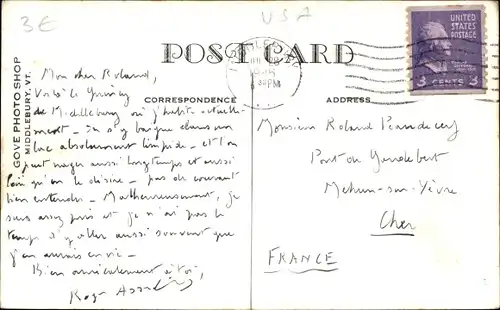 3€
USA
POST CARD
UNITED STATES POSTAGE
3 CENTS 3
PM
GOVE PHOTO SHOP
MIDDLEBURY, VT.
CORRESPONDENCE
ADDRESS
Mon cher Roland,
Voilà le
de Middlebury où j'habite actuelle-
ment - On s'y baigne dans un
lac absolument limpide - et l'on
peut nager aussi longtemps et aussi
loin qu'on le désire - pas de courant
bien entendu - Malheureusement, je
suis assez pris et je n'ai pas le
temps d'y aller aussi souvent que
j'en aurais envie -
Bien amicalement à toi,
Roger
Monsieur Roland
Pont de
Mehun-sur-Yèvre
Cher
FRANCE